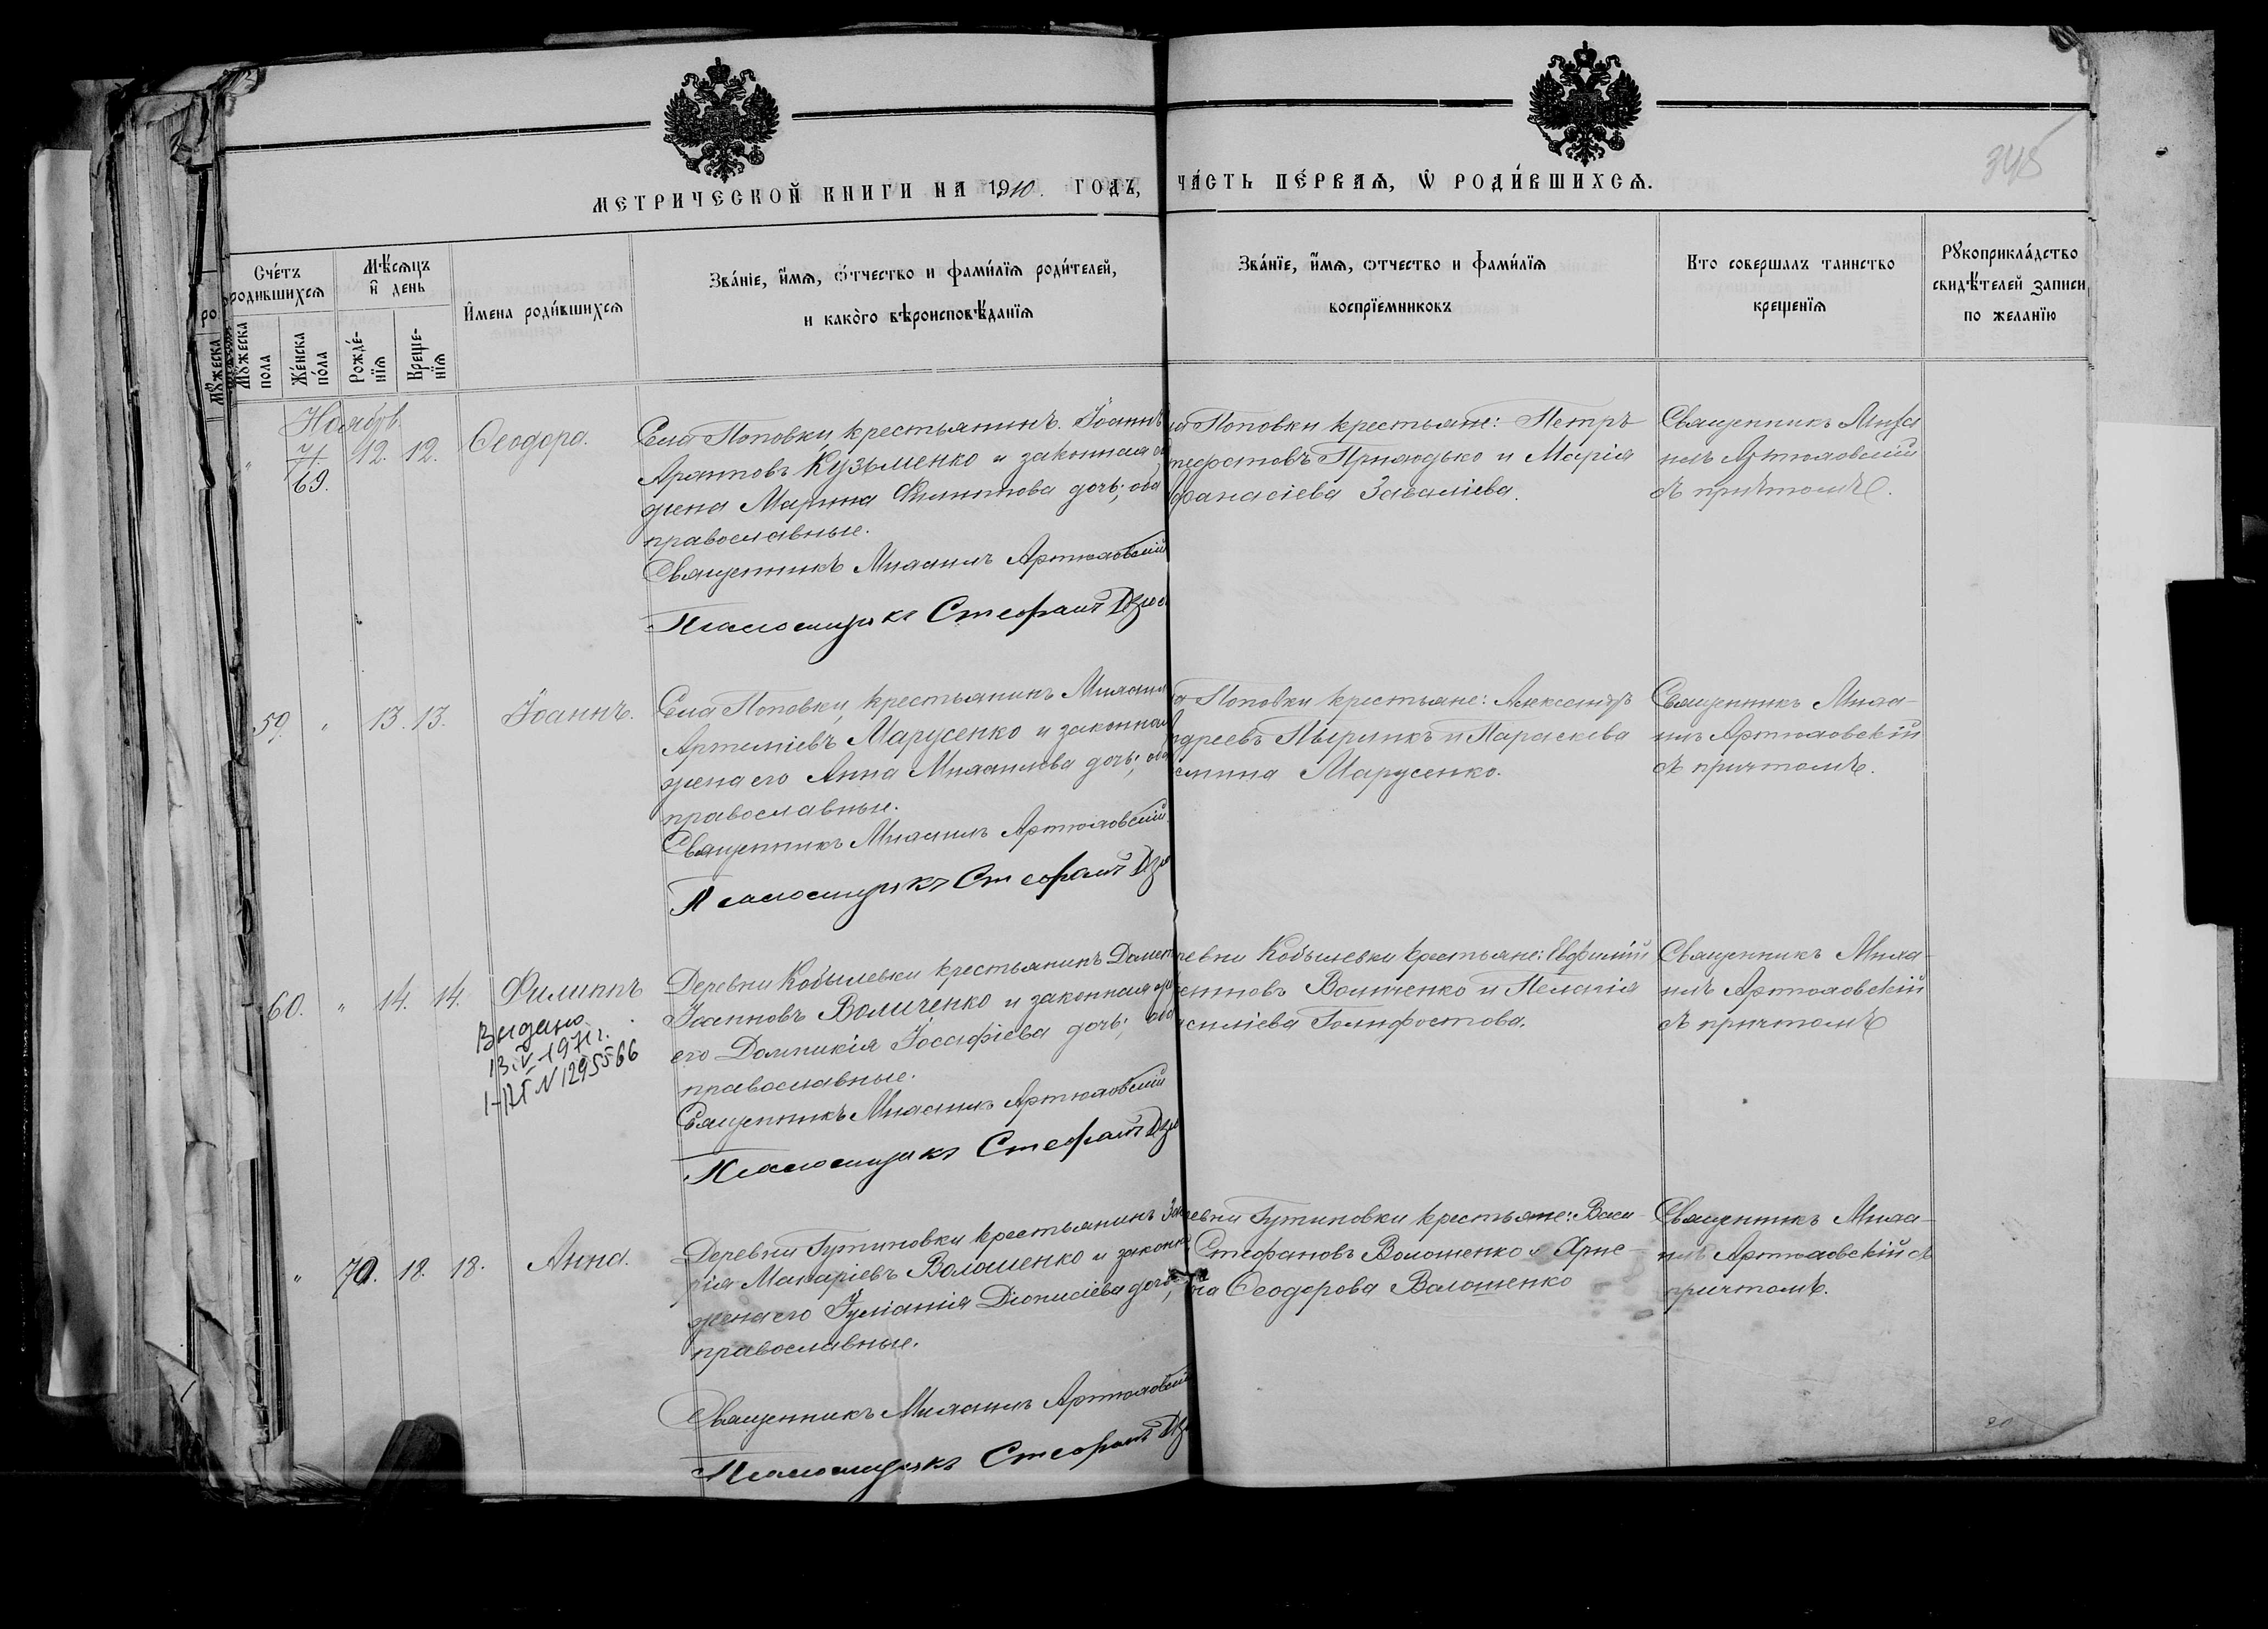 345
МЕТРИЧЕСКОЙ КНИГИ НА 1910. ГОДЪ,
ЧА́СТЬ ПЕ́РВАѦ, Ѿ РОДИ́ВШИХСѦ.
Сче́тъ
родившихсѧ
Мѣ́сѧцъ
и҆ день
Мꙋ́жеска
пола
Же́нска
по́ла
Рожде́-
нїѧ
Креще-
нїѧ
И҆мена роди́вшихсѧ
Зва́нїе, и҆́мѧ, ѻ҆́тчество и фами́лїѧ роди́телей,
и како́гѡ вѣроисповѣ́данїѧ
Зва́нїе, и҆́мѧ, ѻтчество и фами́лїѧ
воспрїе́мниковъ
Кто совершалъ таинство
крещенїѧ
Рꙋкоприкла́дство
свидѣ́телей записи
по желанїю
Ноябрь
"
71.
69.
12.
12.
Ѳеодора.
Села Поповки, крестьянинъ Іоаннъ
Кузьменко и законная
жена Марина Филиппова дочь; оба
православные.
Священникъ Михаилъ Артюховскій
Псаломщикъ Стефанъ
Поповки крестьяне: Петръ
Стефановъ и Марія
Аѳанасіева
Священникъ Миха
илъ Артюховскій
съ причтомъ.
59.
"
13.
13.
Іоаннъ.
Села Поповки, крестьянинъ Михаилъ
Артеміевъ Марусенко и законная
жена его Анна Михаилова дочь; оба
православные.
Священникъ Михаилъ Артюховскій.
Псаломщикъ Стефанъ
Поповки крестьяне: Александръ
Андреевъ Пыринкъ и Параскева
Марусенко.
Священникъ Миха-
илъ Артюховскій
съ причтомъ.
60.
"
14.
14.
Филиппъ
Видано
13.V-1971 г.
N 1295566
Деревни Кобылевки крестьянинъ
Іоанновъ Воличенко и законная
его Домникія Іоасафіева дочь; оба
православные.
Священникъ Михаилъ Артюховскій
Псаломщикъ Стефанъ
Деревни Кобылевки крестьяне: Евфимій
и Пелагія
Василіева
Священникъ Миха-
илъ Артюховскій
съ причтомъ
"
70.
18.
18.
Анна.
Деревни Гутиновки крестьянинъ
Макаріевъ Волошенко и законная
жена его Іуліанія Діонисіева дочь,
православные.
Священникъ Михаилъ Артюховскій
Псаломщикъ Стефанъ
Деревни Гутиновки крестьяне: Васи-
Стефановъ Волошенко и Ѳрие-
Ѳеодорова Волошенко
Священникъ Миха-
илъ Артюховскій съ
причтомъ.